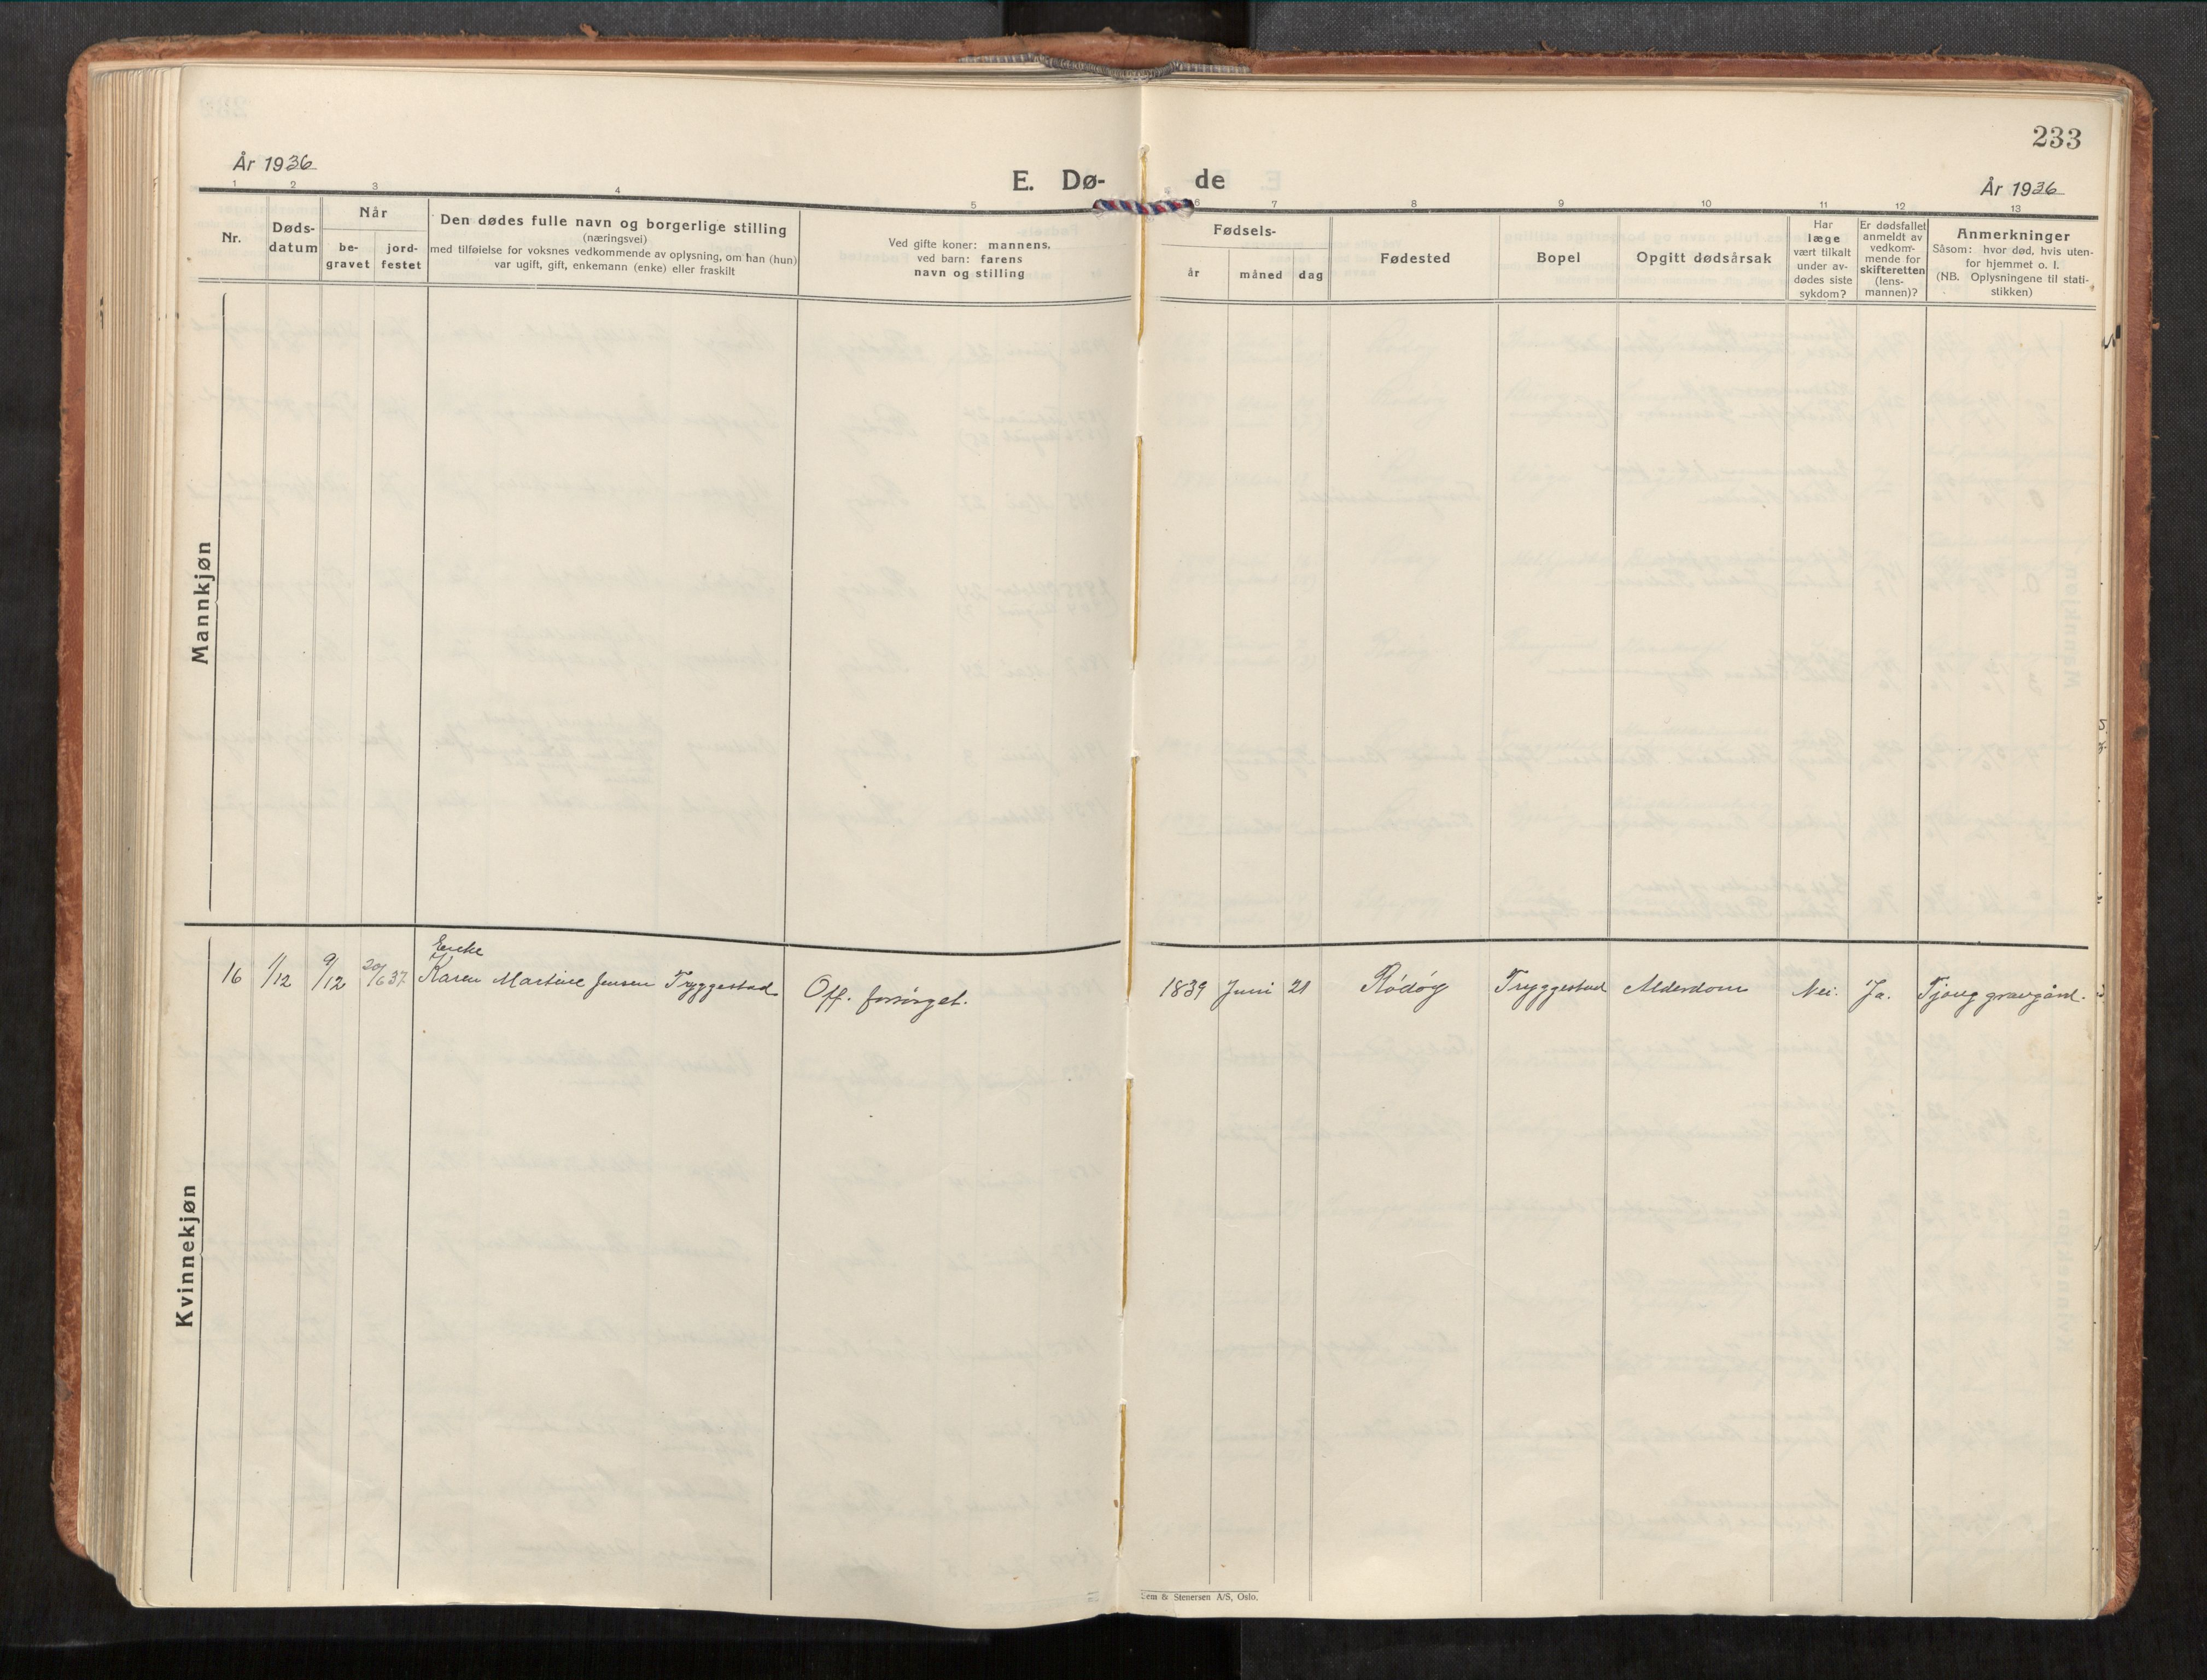 233
År 1936
E. Dø-
de
År 1936
1 2 3 4 5 6 7 8 9 10 11 12 13
Nr.
Døds-
datum
Når
be-
gravet
jord-
festet
Den dødes fulle navn og borgerlige stilling
(næringsvei)
med tilføielse for voksnes vedkommende av oplysning, om han (hun)
var ugift, gift, enkemann (enke) eller fraskilt
Ved gifte koner: mannens,
ved barn: farens
navn og stilling
Fødsels-
år
måned
dag
Fødested
Bopel
Opgitt dødsårsak
Har
læge
vært tilkalt
under av-
dødes siste
sykdom?
Er dødsfallet
anmeldt av
vedkom-
mende for
skifteretten
(lens-
mannen)?
Anmerkninger
Såsom: hvor død, hvis uten-
for hjemmet o. l.
(NB. Oplysningene til stati-
stikken)
Mannkjøn
Kvinnekjøn
Enke
16 1/12 9/12 20/6 37 Karen Martine Jensen Tryggestad Off. forsørget. 1839 Juni 21 Rødøy Tryggestad Alderdom Nei. Ja. Tjong gravgård.
Sem & Stenersen A/S, Oslo.